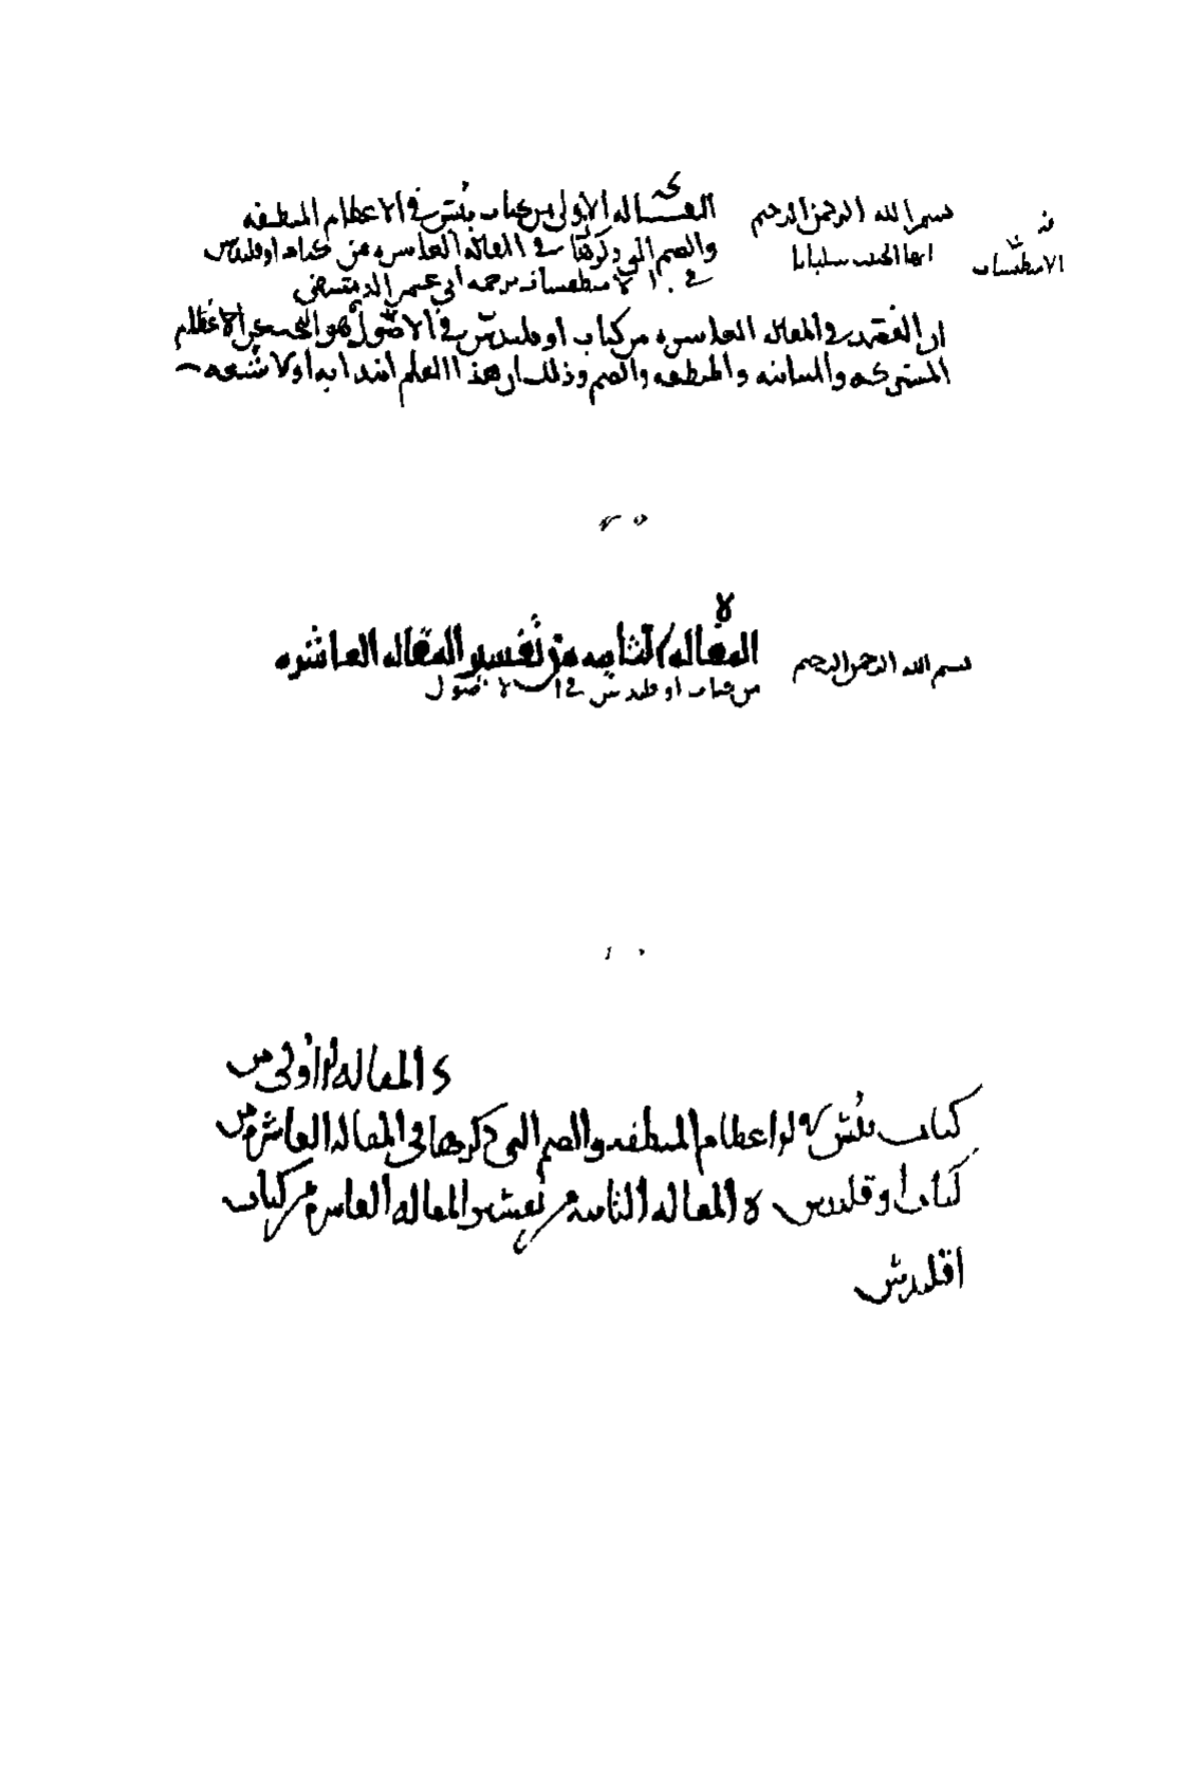 بسم الله الرحمن الرحيم
المقاله الاولى من كتاب ببس في الاعظام المنطقه
والصم التي ذكرها في المقاله العاشره من كتاب اوقليدس
في الاسطقسات ترجمه ابي عثمن الدمشقي
ان الغرض في المقاله العاشره من كتاب اوقليدس في الاصول هو البحث عن الاعظام
المشتركه والمتباينه والمنطقه والصم وذلك ان هذا العلم ابتدا به اولا شيعه
بسم الله الرحمن الرحيم
المقاله الثانيه من تفسير المقاله العاشره
من كتاب اوقليدس في الاصول
المقاله الاولى من
كتاب ببس في الاعظام المنطقه والصم التي ذكرها في المقاله العاشره من
كتاب اوقليدس المقاله الثانيه من تفسير المقاله العاشره من كتاب
اقليدس